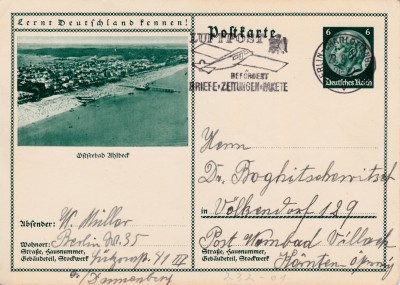 Lernt Deutschland kennen!
Postkarte
LUFTPOST
BEFÖRDERT
BRIEFE·ZEITUNGEN·PAKETE
6 6
Deutsches Reich
Ostseebad Ahlbeck
Herrn
Dr. Boghitschewitsch
in Völkendorf 129
Post Warmbad Villach
Kärnten
Absender: W. Müller
Wohnort: Berlin W. 35
Straße, Hausnummer,
Gebäudeteil, Stockwerk Lützowstr. 41 III
b/Dannenberg
Straße, Hausnummer,
Gebäudeteil, Stockwerk